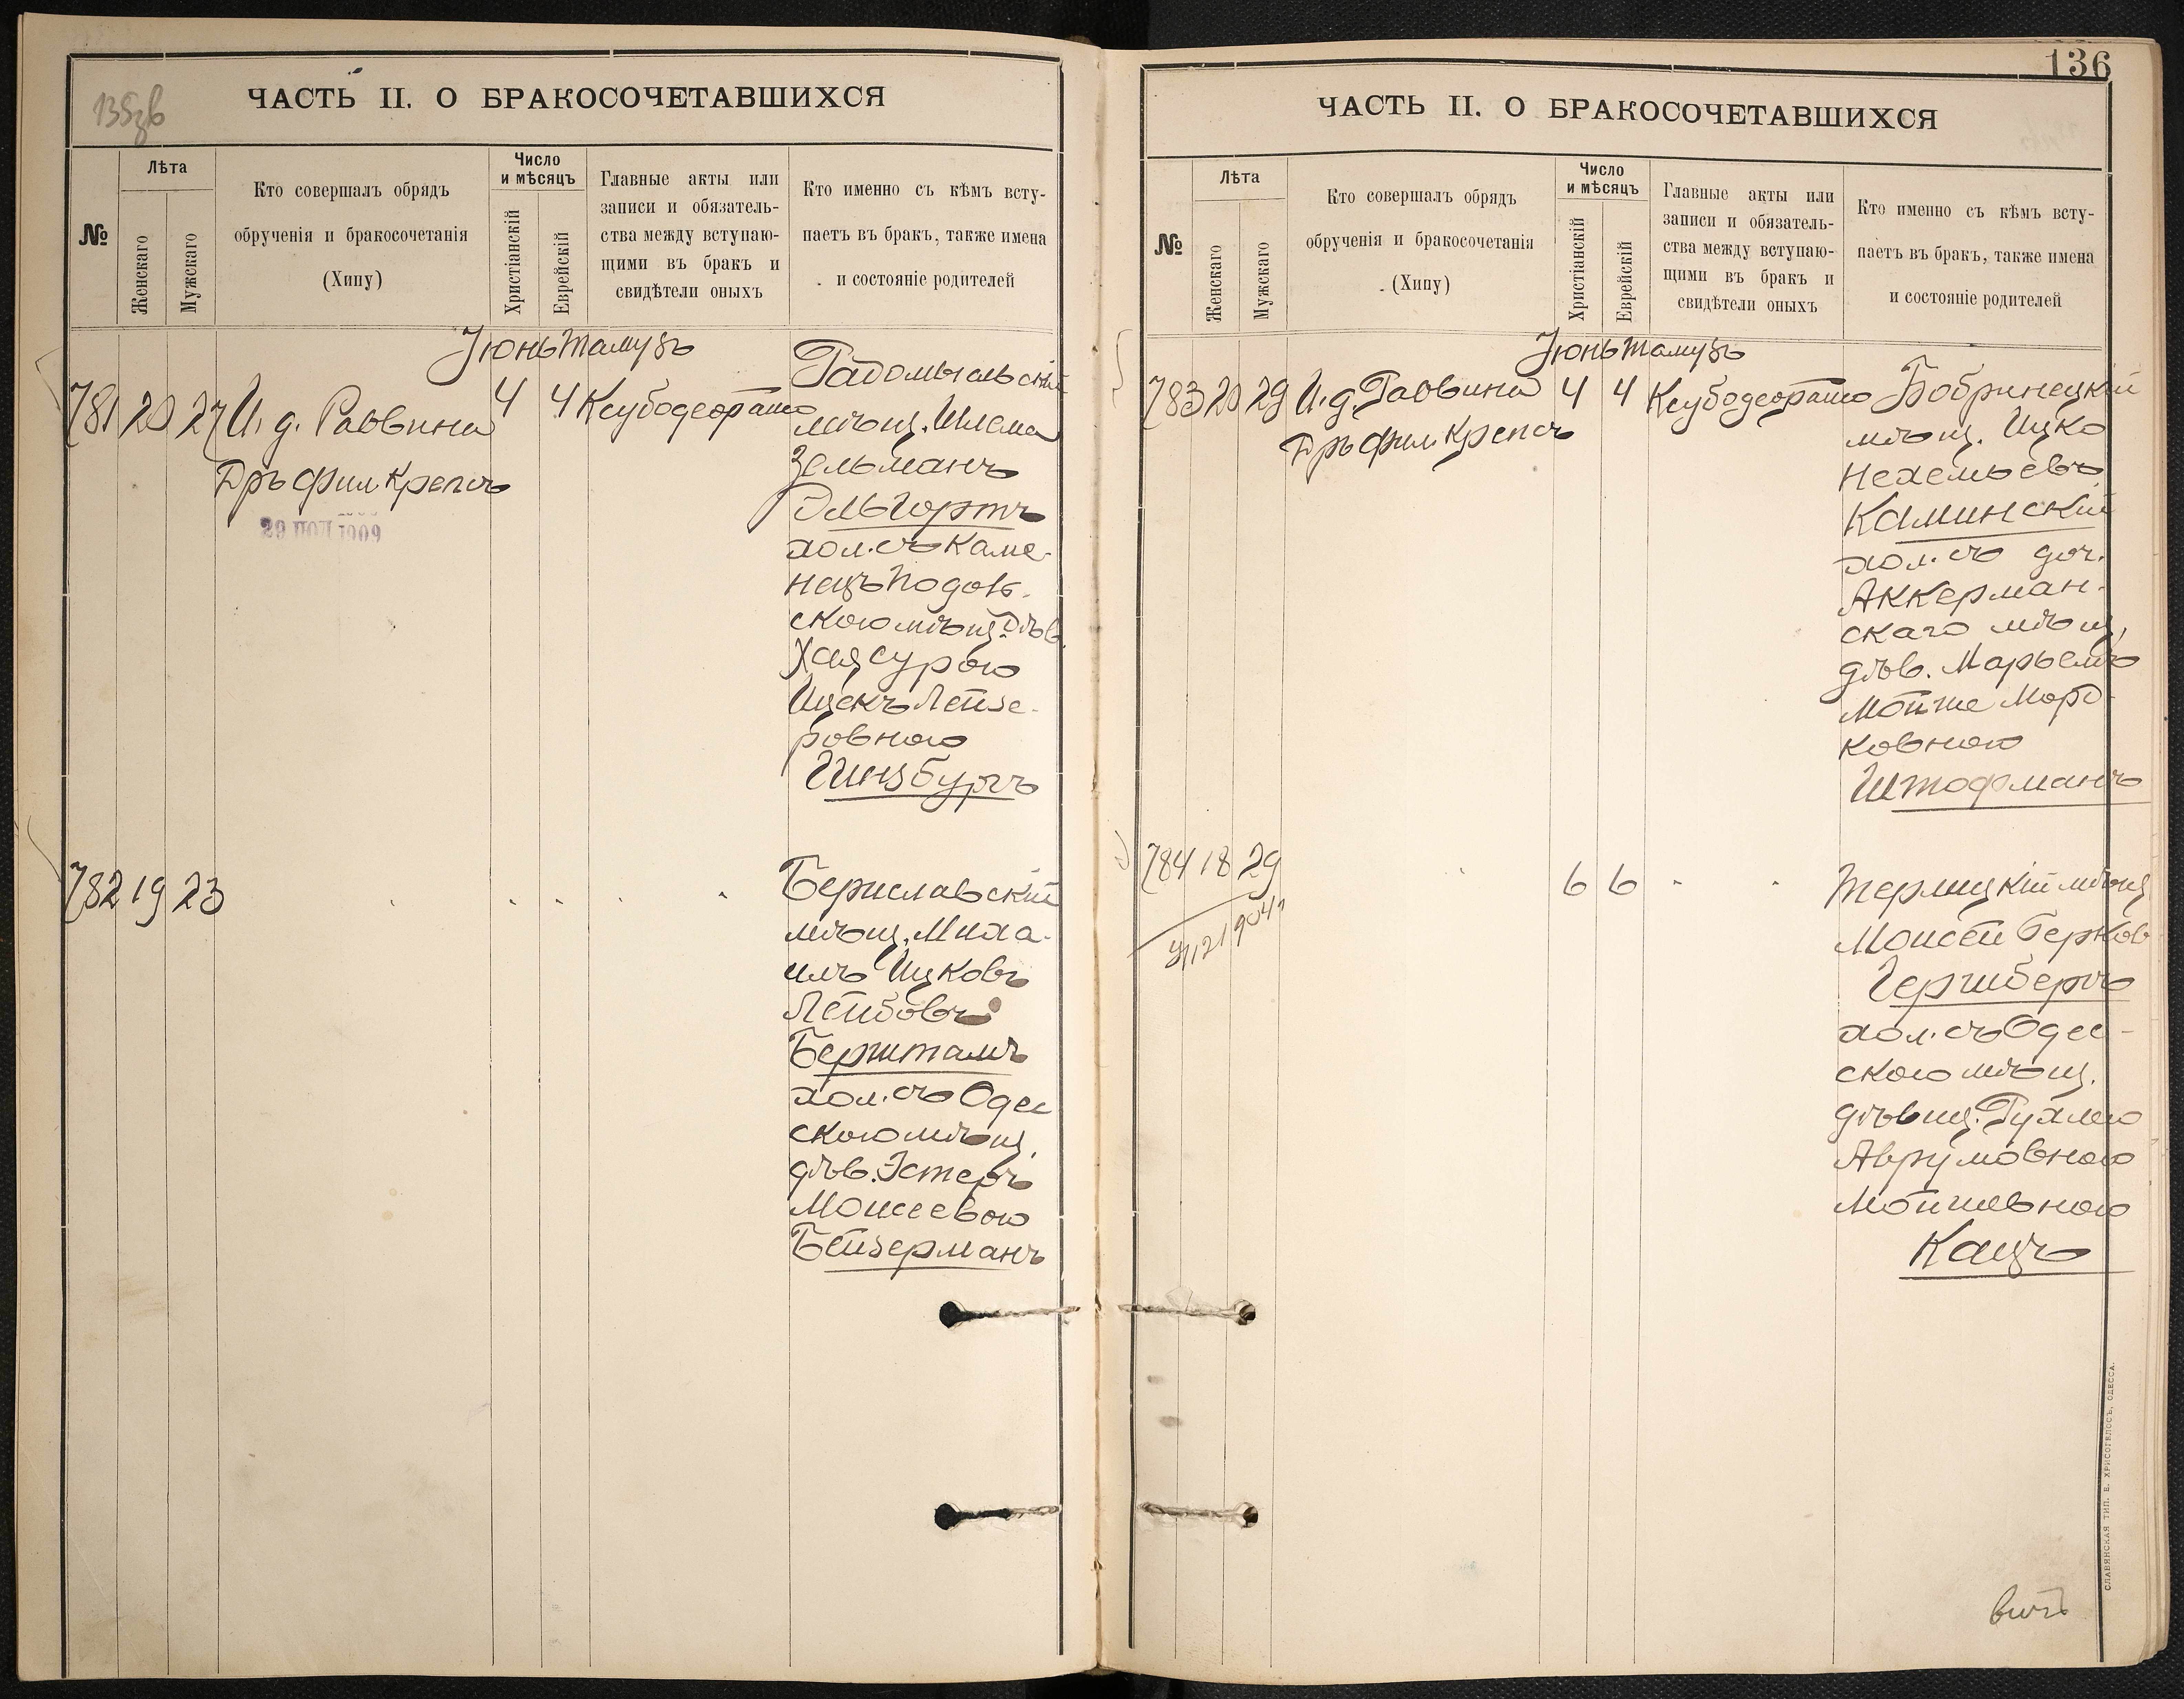 135зв
ЧАСТЬ II. О БРАКОСОЧЕТАВШИХСЯ
№
Лѣта
Женскаго
Мужскаго
Кто совершалъ обрядъ
обрученія и бракосочетанія
(Хипу)
Число
и мѣсяцъ
Христіанскій
Еврейскій
Главные акты или
записи и обязатель-
ства между вступаю-
щими въ бракъ и
свидѣтели оныхъ
Кто именно съ кѣмъ всту-
паетъ въ бракъ, также имена
и состояніе родителей
Іюнь Тамузъ
781 20 27 И. д. Раввина 4 4
Дръ фил. Крепсъ
Радомысльскій
мѣщ. Шлема
Зельманъ
Эльгортъ
хол. съ Каме-
нецъ Подоль-
скою мѣщ. дѣв.
Хая Сурою
Ицекъ Лейзе-
ровною
Гинзбургъ
782 19 23
Бериславскій
мѣщ. Миха-
илъ Ицковъ
Лейбовъ
Берштамъ
хол. съ Одес
скою мѣщ.
дѣв. Эстеръ
Моисеевою
Бейзерманъ
136
ЧАСТЬ II. О БРАКОСОЧЕТАВШИХСЯ
№
Лѣта
Женскаго
Мужскаго
Кто совершалъ обрядъ
обрученія и бракосочетанія
(Хипу)
Число
и мѣсяцъ
Христіанскій
Еврейскій
Главные акты или
записи и обязатель-
ства между вступаю-
щими въ бракъ и
свидѣтели оныхъ
Кто именно съ кѣмъ всту-
паетъ въ бракъ, также имена
и состояніе родителей
Іюнь Тамузъ
783 20 29 И. д. Раввина 4 4
Дръ фил. Крепсъ
Бобринецкій
мѣщ. Ицко
Нехемьевъ
Каминскій
хол. съ доч.
Аккерман-
скаго мѣщ.
дѣв. Марьемъ
Мойше Морд-
ковною
Штофманъ
784 18 29 6 6
Терлицкій мѣщ
Моисей Берков
Гершбергъ
хол. съ Одес-
скою мѣщ.
дѣвиц. Рухлею
Аврумовною
Мойшевною
Кацъ
СЛАВЯНСКАЯ ТИП. Е. ХРИСОГЕЛОСЪ, ОДЕССА.